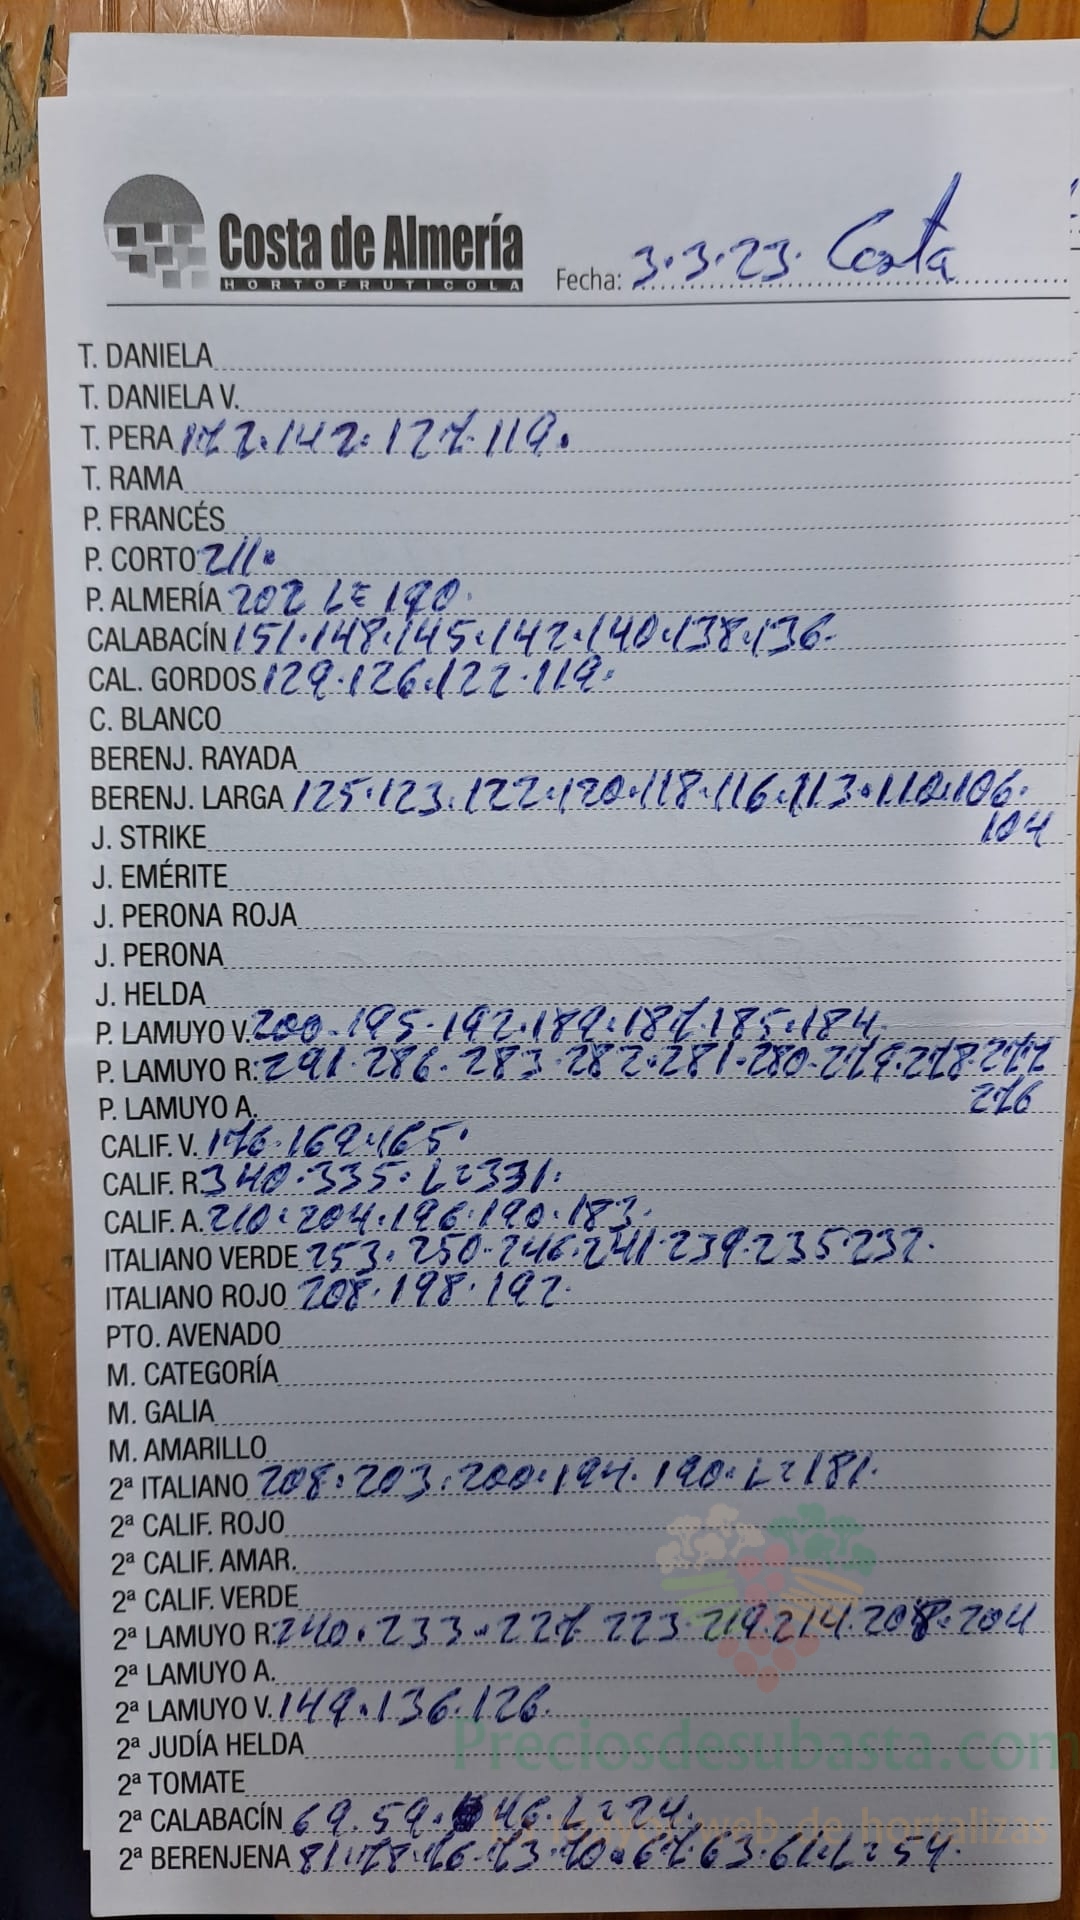 Costa de Almería
HORTOFRUTICOLA
Fecha: 3.3.23. Costa
T. DANIELA
T. DANIELA V.
T. PERA 172.142.127.119.
T. RAMA
P. FRANCÉS
P. CORTO 211.
P. ALMERÍA 202 L= 190.
CALABACÍN 151.148.145.142.140.138.136.
CAL. GORDOS 129.126.122.119.
C. BLANCO
BERENJ. RAYADA
BERENJ. LARGA 125.123.122.120.118.116.113.110.106.
104
J. STRIKE
J. EMÉRITE
J. PERONA ROJA
J. PERONA
J. HELDA
P. LAMUYO V. 200.195.192.189.187.185.184.
P. LAMUYO R. 291.286.283.282.281.280.279.278.277
276
P. LAMUYO A.
CALIF. V. 176.169.165.
CALIF. R 340.335. L=331.
CALIF. A. 210.204.196.190.183.
ITALIANO VERDE 253.250.246.241.239.235.232.
ITALIANO ROJO 208.198.192.
PTO. AVENADO
M. CATEGORÍA
M. GALIA
M. AMARILLO
2ª ITALIANO 208.203.200.194.190. L=181.
2ª CALIF. ROJO
2ª CALIF. AMAR.
2ª CALIF. VERDE
2ª LAMUYO R. 240.233.227.223.219.214.208.204
2ª LAMUYO A.
2ª LAMUYO V. 149.136.126.
Preciosdesubasta.com
2ª JUDÍA HELDA
2ª TOMATE
2ª CALABACÍN 69.59. 46. L=24.
mayor web de hortalizas
2ª BERENJENA 81.78.76.73.70.67.63.61. L=54.